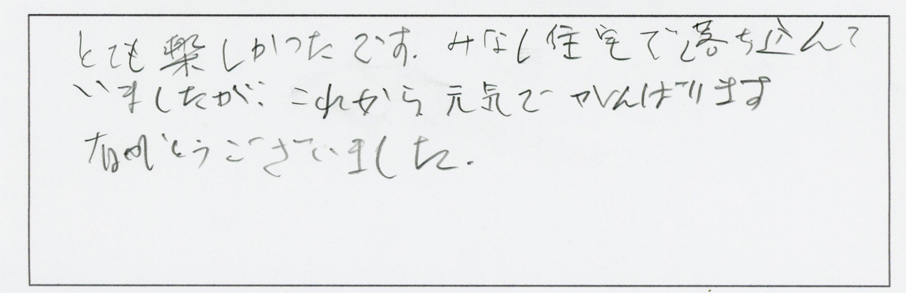 とても楽しかったです。みなし住宅で落ち込んで
いましたが、これから元気でがんばります
ありがとうございました。